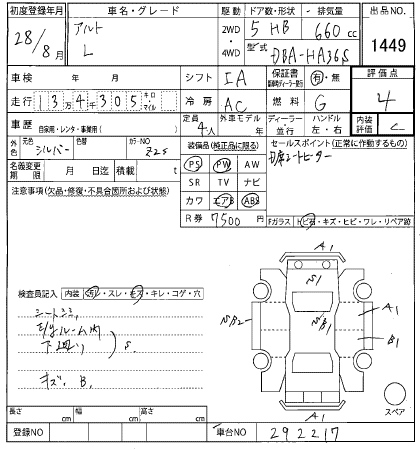 初度登録年月 車名・グレード 駆動 ドア数・形状 排気量 出品NO.
28/8月 アルト L 2WD・4WD 5 HB 660cc 1449
型式 DBA-HA36S
車検 年 月 シフト IA 保証書 有・無 評価点
走行 13万4千305 キロ マイル 冷房 AC 燃料 G 4
車歴 自家用・レンタ・事業用( ) 定員 4人 外車モデル 年 ディーラー・並行 ハンドル 左・右 内装評価 C
外色 元色 シルバー 色替 カラーNO Z2S 装備品(純正品に限る) セールスポイント(正常に作動するもの)
名義変更期限 月 日迄 積載 t PS PW AW
注意事項(欠品・修復・不具合箇所および状態) SR TV ナビ
カワ エアB ABS
R券 7500円 Fガラス トビ石・キズ・ヒビ・ワレ・リペア跡
検査員記入 内装 汚レ・スレ・キズ・キレ・コゲ・穴
シートシミ
ルーム内
下廻り S.
キズ B.
A1
S1
B1
A1
B1
A1
スペア
長さ cm 幅 cm 高さ cm
登録NO 車台NO 292217